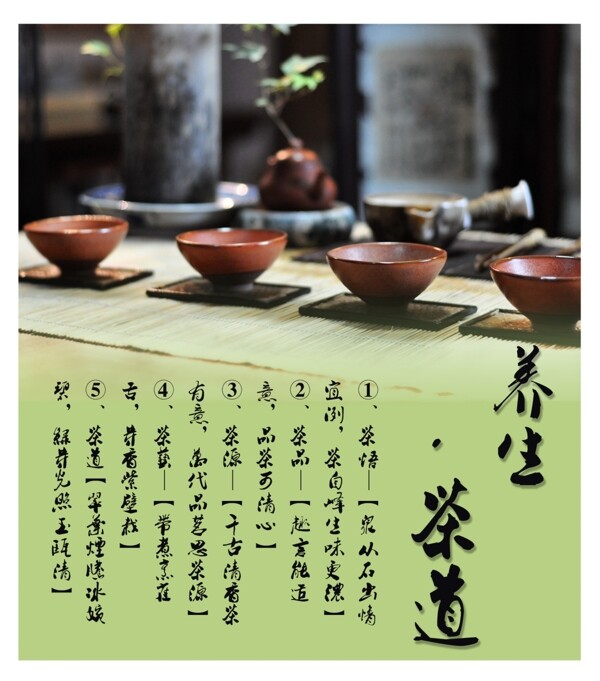 养生·茶道
①、茶悟—【泉从石出情
宜冽，茶自峰生味更浓】
②、茶品—【趣言能适
意，品茶可清心】
③、茶源—【千古清香茶
有意，万代品茗思茶源】
④、茶艺—【带煮窯莊
古，芽香紫壁栽】
⑤、茶道【翠葉煙腾冰碗
碧，绿芽光照玉瓯清】